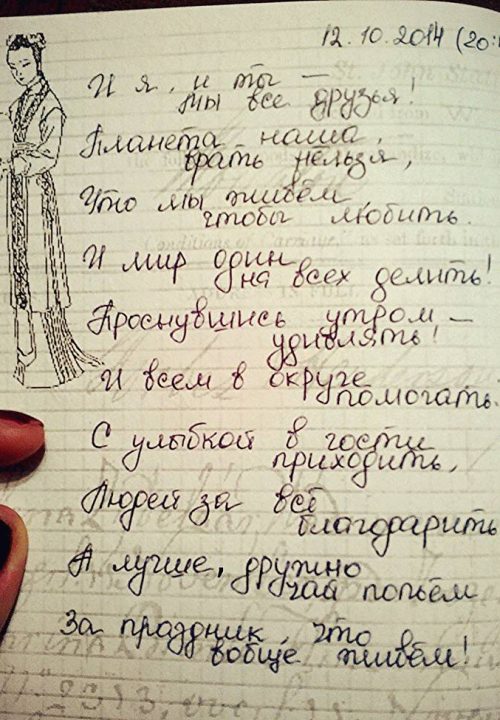 12.10.2014 (20:
И я, и ты —
мы все друзья!
Планета наша,
врать нельзя,
Что мы живём,
чтобы любить.
И мир один
на всех делить!
Проснувшись утром —
удивлять!
И всем в округе
помогать.
С улыбкой в гости
приходить,
Людей за всё
благодарить
А лучше, дружно
чай попьём
За праздник, что
вобще живём!